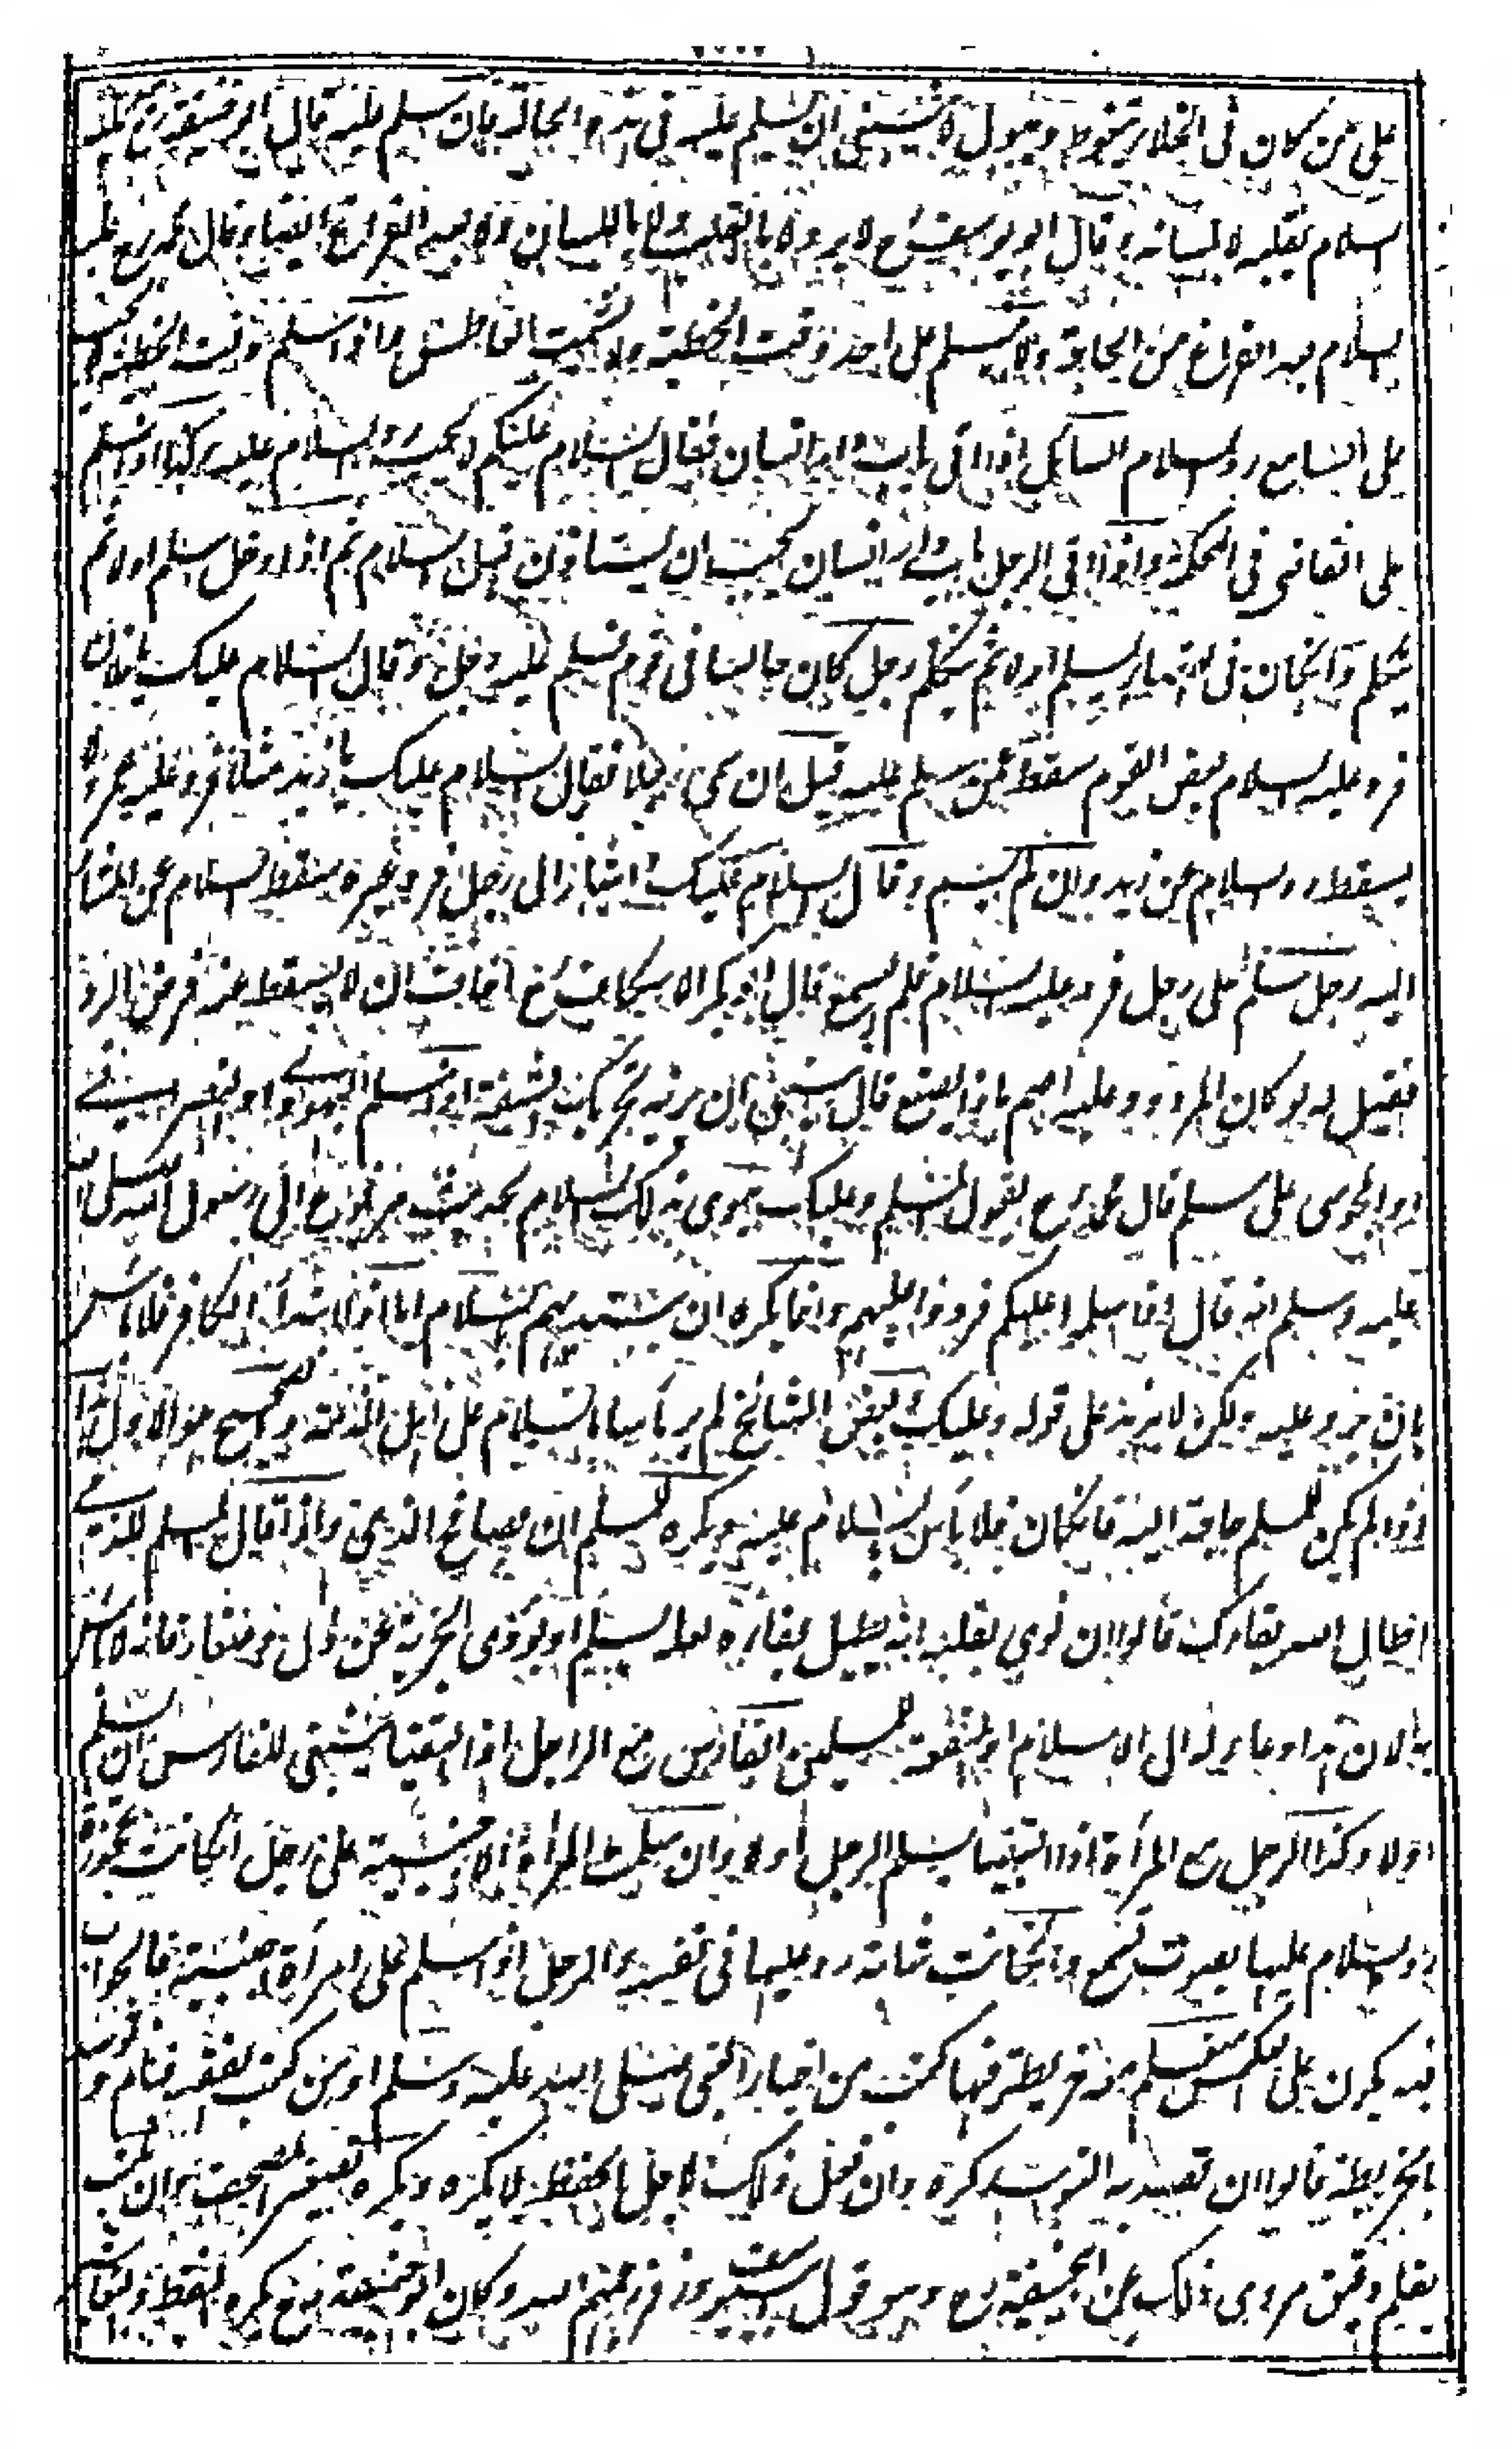 على من كان فى الخلاء يتغوط ويبول لا ينبغى ان يسلم عليه فى هذه الحالة فان سلم عليه قال ابو حنيفة رح يرد
السلام بقلبه لا بلسانه وقال ابو يوسف رح لا يرد لا بالقلب ولا باللسان ولا بعد الفراغ ايضا وقال محمد رح يرد
السلام بعد الفراغ من الحاجة ولا يسلم على احد وقت الخطبة ولا يشمت العاطس فاذا سلم وقت الخطبة لا يجب
على السامع رد السلام السائل اذا اتى باب دار انسان فقال السلام عليكم لا يجب رد السلام عليه وكذا اذا سلم
على القاضى فى المحكمة واذا اتى الرجل باب دار انسان يجب ان يستاذن قبل السلام ثم اذا دخل سلم اولا ثم
يتكلم وان كان فى يسلم اولا ثم يتكلم رجل كان جالسا فى قوم فسلم عليه رجل وقال السلام عليك يا فلان
فرد عليه السلام بعض القوم سقط عمن سلم عليه قيل ان سمى رجلا فقال السلام عليك يا زيد مثلا فرد عليه عمرو لا
يسقط رد السلام عن زيد وان لم يسم وقال السلام عليك و اشار الى رجل فرد غيره سقط السلام عن المشار
اليه رجل سلم على رجل فرد عليه السلام فلم يسمع قال ابو بكر الاسكاف رح اخاف ان لا يسقط عنه فرض الرد
فقيل له لو كان المردود عليه اصم ماذا يصنع قال ينبغى ان يريه تحريك شفتيه اذا سلم اليهودى او النصرانى
او المجوسى على مسلم قال محمد رح يقول المسلم وعليك ينوى بذلك السلام لحديث مرفوع الى رسول الله صلى الله
عليه وسلم انه قال اذا سلموا عليكم فردوا عليهم وانما يكره ان يبتديهم بالسلام اما اذا ابتدأ الكافر فلا باس
بان يرد عليه ولكن لا يزيد على قوله وعليك وبعض المشائخ لم ير باسا بالسلام على اهل الذمة والصحيح هو الاول هذا
اذا لم يكن للمسلم حاجة اليه فان كان فلا باس بالسلام عليه ويكره للمسلم ان يصافح الذمى واذا قال المسلم للذمى
اطال الله بقاءك قالوا ان نوى بقلبه انه يطيل بقاءه لعله يسلم او يؤدى الجزية عن ذل وصغار فانه لا باس
به لان هذا دعاء له الى الاسلام او لمنفعة المسلمين الفارس مع الراجل اذا التقيا ينبغى للفارس ان يسلم
اولا وكذا الرجل مع المرأة اذا التقيا يسلم الرجل اولا وان سلمت المرأة الاجنبية على رجل ان كانت عجوزا
رد السلام عليها بصوت تسمع وان كانت شابة رد عليها فى نفسه والرجل اذا سلم على امرأة اجنبية فالجواب
فيه يكون على العكس مسلم معه خريطة فيها كتب من اخبار النبى صلى الله عليه وسلم او من كتب الفقه فنام و توسد
بالخريطة قالوا ان قصد به التوسد كره وان فعل ذلك لاجل الحفظ لا يكره ويكره تصغير المصحف وان يكتب
بقلم دقيق مروى ذلك عن ابى حنيفة رح وهو قول ابى يوسف وزفر رحمهم الله وكان ابو حنيفة رح يكره النقط و